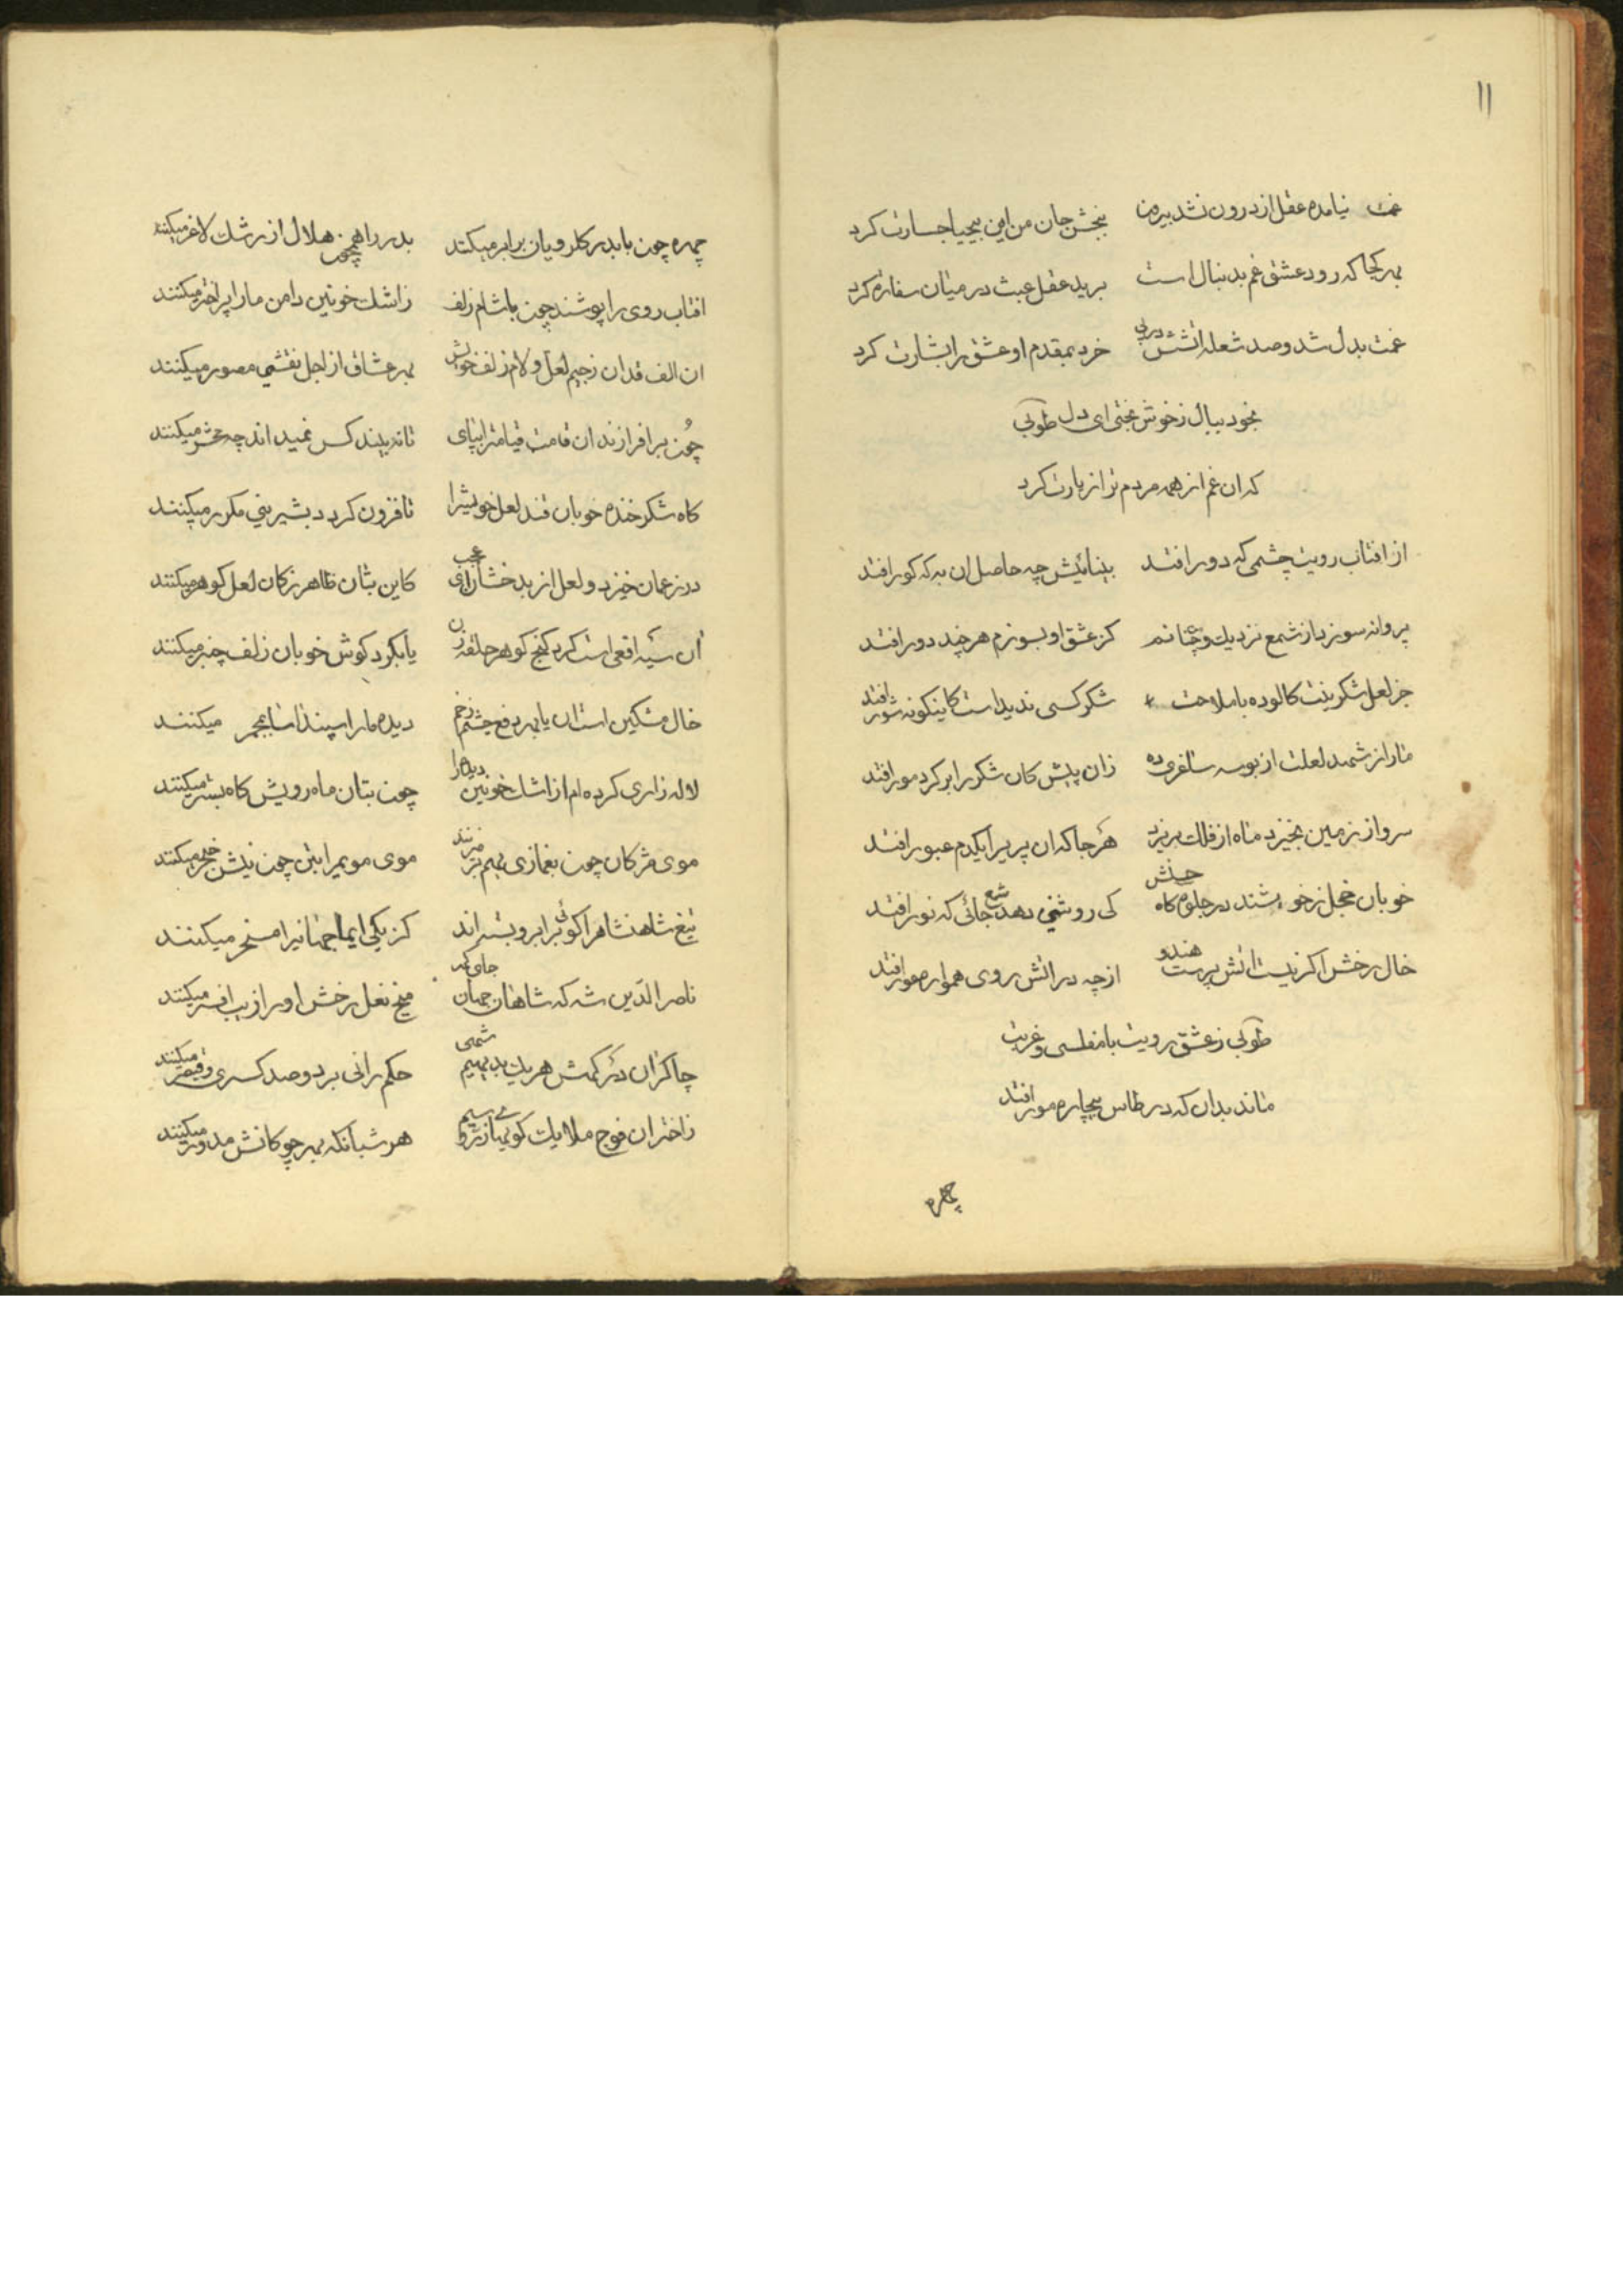 ۱۱
غمت نیامده عقل از درون نشد بیرون ببخش جان من این بیحیا جسارت کرد
بهر کجا که رود عشق غم بدنبال است برید عقل عبث در میان سفارة کرد
غمت بدل شد و صد شعله اتشش در پی خرد بمقدم او عشق را بشارت کرد
بخود ببال ز خوش بختی ای دل طوبی
که ان غم از همه مردم ترا زیارت کرد
از افتاب رویت چشمی که دور افتد بینائیش چه حاصل ان به که کور افتد
پروانه سوزد از شمع نزدیک و من چنانم کز عشق او بسوزم هر چند دور افتد
جز لعل شکرینت کالوده با ملاحت شکر کسی ندیداست کاینکونه شور افتد
ما را ز شهد لعلت از بوسه ساغری ده زان پیش کان شکر را بر کرد مور افتد
سرو از زمین نخیزد ماه از فلک بریزد هر جا که ان پریرا یکدم عبور افتد
خوبان خجل ز خویشند در جلوه کاه حسنش کی روشنی دهد شمع جائی که نور افتد
خال رخش اکر نیست هندو اتش پرست از چه در اتش روی هموار مور افتد
طوبی ز عشق رویت با مفلسی و غربت
ماند بدان که در طاس بیچاره مور افتد
چهره
چهره چون با بدر کلرویان برابر میکنند بدر را همچون هلال از رشک لاغر میکنند
افتاب روی را پوشند چون با شام زلف ز اشک خونین دامن ما را پر اختر میکنند
ان الف قدان ز جیم لعل و لام زلف خویش بهر عشاق از اجل نقشی مصور میکنند
چون بر افرازند ان قامت قیامترا بپای تا نه بینند کس نمیداند چه محشر میکنند
کاه شکر خنده خوبان قند لعل خویشرا تا فزون کردد بشیرینی مکرر میکنند
در ز عمان خیزد و لعل از بدخشان ای عجب کاین بتان ظاهر ز کان لعل کوهر میکنند
آن سیه افعی است کرد کنج کوهر حلقه زن یا بکرد کوش خوبان زلف چنبر میکنند
خال مشکین است ان یا بهر دفع چشم زخم دیده ما را سپند اسا بمجمر میکنند
لاله زاری کرده ام از اشک خونین دیده را چون بتان ماه رویش کاه بستر میکنند
موی مژکان چون بغمازی بهم بر میزنند موی مویم را بتن چون نیش خنجر میکنند
تیغ شاهنشاه را کوئی بر ابرو بسته اند کز یکی ایما جهانیرا مسخر میکنند
ناصر الدین شه که شاهان جهان جای کهر میخ نعل رخش او را زیب افسر میکنند
چاکران درکهش هر یک بدیهیم شهی حکمرانی بر دو صد کسری و قیصر میکنند
ز اختران فوج ملایک کوی ها از زر و سیم هر شبانکه بهر چوکانش مدور میکنند